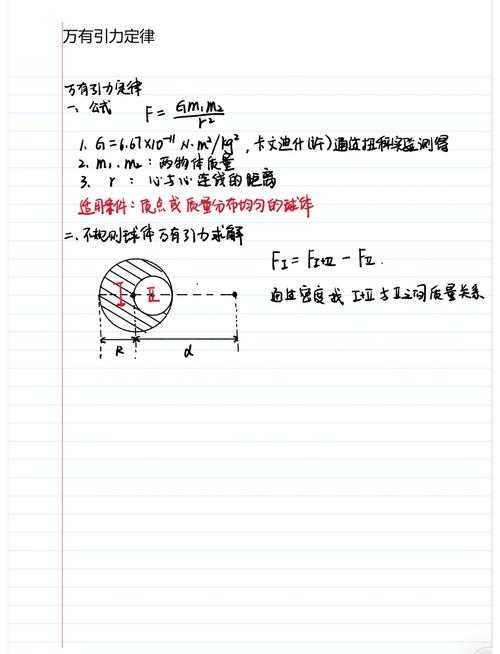 万有引力定律
万有引力定律
一、公式 F = Gm₁m₂/r²
1. G=6.67×10⁻¹¹ N·m²/kg², 卡文迪什(许)通过扭秤实验测得
2. m₁、m₂ : 两物体质量
3. r : 心与心连线的距离
适用条件：质点或质量分布均匀的球体
二、不规则球体万有引力求解
F_Ⅰ = F_Ⅰ+Ⅱ - F_Ⅱ.
Ⅰ Ⅱ 通过密度找 Ⅰ+Ⅱ与Ⅱ之间质量关系
R d